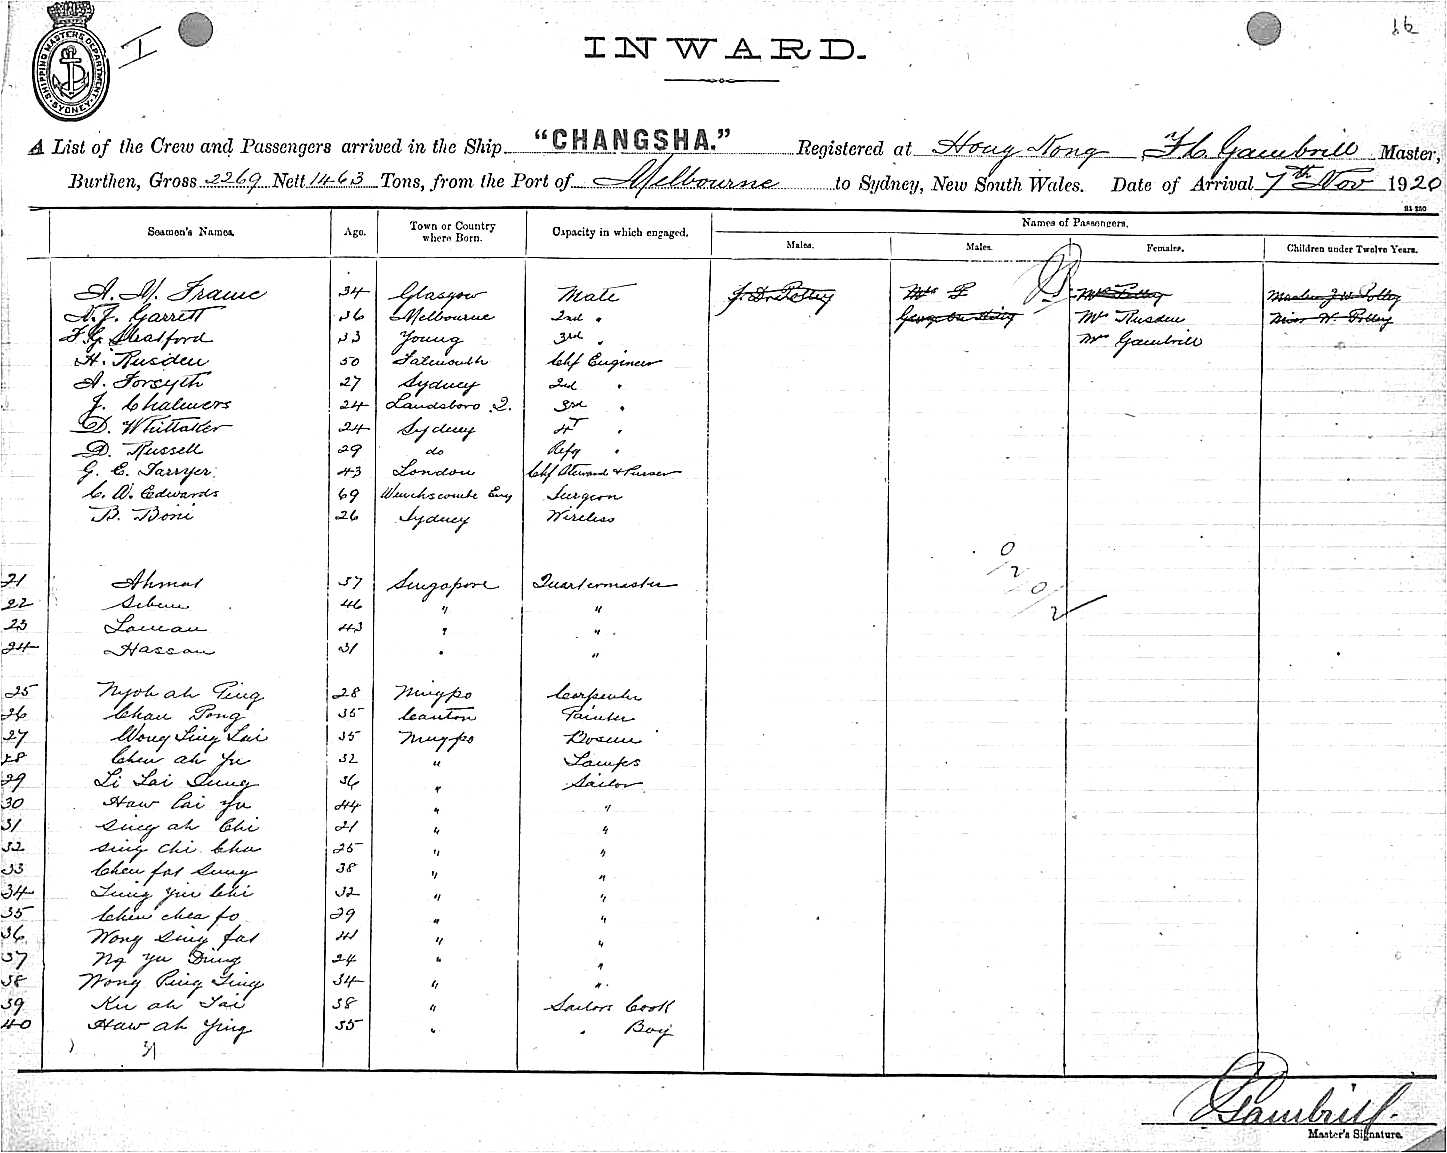 SHIPPING MASTERS DEPARTMENT
SYDNEY
I
16
INWARD.
A List of the Crew and Passengers arrived in the Ship "CHANGSHA." Registered at Hong Kong F L Gambrill Master,
Burthen, Gross 2269 Nett 1463 Tons, from the Port of Melbourne to Sydney, New South Wales. Date of Arrival 7th Nov 1920
Seamen's Names. Age. Town or Country where Born. Capacity in which engaged. Names of Passengers.
Males. Males. Females. Children under Twelve Years.
34 Glasgow Mate
N. J. Garrett 36 Melbourne 2nd " Mrs Rusden
33 Young 3rd " Mrs Gambrill
H. Rusden 50 Falmouth Chf Engineer
A. Forsyth 27 Sydney 2nd "
J. Chalmers 24 Landsboro Q. 3rd "
D. Whittaker 24 Sydney 4th "
D. Russell 29 do Refg "
G. E. Farryer 43 London Chf Steward & Purser
C. W. Edwards 69 Winchscombe Eng Surgeon
B. Boni 26 Sydney Wireless
21 Ahmat 37 Singapore Quartermaster
22 46 " "
23 Laman 43 " "
24 Hassan 31 " "
25 Njoh ah Ping 28 Ningpo Carpenter
26 Chan Pong 35 Canton Painter
27 Wong Sing Lai 35 Ningpo Bosun
28 Chen ah Yu 32 " Lamps
29 Li Lai Sung 36 " Sailor
30 Haw Cai Yu 44 " "
31 Sing ah Chi 21 " "
32 Sing Chi Cha 25 " "
33 Chen fat Sung 38 " "
34 Ling Yin Chi 32 " "
35 Chen chea fo 29 " "
36 Wong Sing fat 41 " "
37 Ng Yu Ding 24 " "
38 Wong Ping Ling 34 " "
39 Ku ah Tai 38 " Sailors Cook
40 Haw ah Ying 35 " " Boy
31
F L Gambrill.
Master's Signature.